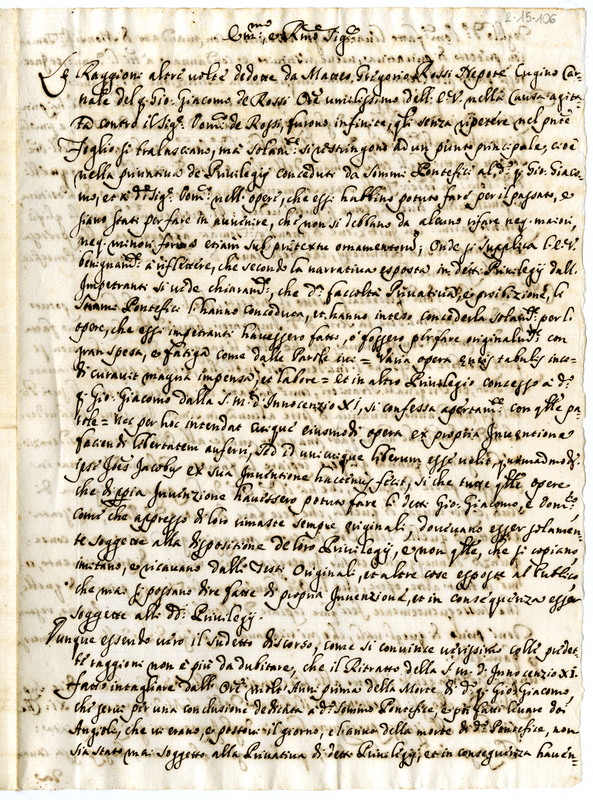 2-15-106
Em.mo e R.mo Sig.re
Le Raggioni altre volte dedotte da Matteo Gregorio Rossi Nepote Cugino Car-
nale del q. Gio: Giacomo de Rossi Ore umilissimo dell' E.V. nella Causa agita-
ta contro il Sig.r Dom.co de Rossi, furono infinite, gli senza ripetere nel pnte
Foglio si tralasciano, ma solam.te si restringono ad un punto principale, cioè
nella privativa de Privilegij conceduti da Sommi Pontefici al d.o q. Gio: Giaco-
mo, et a d.o Sig.r Dom.co nell' opere, che essi habbino potuto fare per il passato, e
siano stati per fare in avvenire, che non si debbano da alcuno rifare neq. maiori,
neq. minori forma etiam sub pretextu ornamentorum; Onde si supplica l' E.V.
benignam.te a riflettere, che secondo la narrativa esposta in detti Privilegij dall'
Impetranti si vede chiaram.te, che d.a facoltà Privativa, e proibizione, li
Sommi Pontefici l' hanno conceduta, et hanno inteso concederla solam.te per l'
opere, che essi impetranti havessero fatto, ò fossero per fare originalm.te con
gran spesa, e fatiga come dalle Parole ivi = Varia opera eneis tabulis inci-
di curavit magna impensa, et labore = et in altro Privilegio concesso à d.o
q. Gio: Giacomo dalla S. m. d' Innocenzio XI, si confessa apertam.te con q.lle pa-
role = Nec per hoc intendat cuique eiusmodi opera ex propria Inventione
faciendi libertatem auferri, sed id unicuique liberum esse velit, quemadmod.
ipse Joes Jacobus ex sua Inventione hactenus fecit, si che tutte q.lle opere
che di ppia Invenzione havessero potuto fare li detti Gio: Giacomo, e Dom.co,
come che appresso di loro rimaste sempre originali, dovevano esser solamen-
te soggette alla disposizione de loro Privilegij, e non q.lle, che si copiano
imitano, e ricavano dalli Testi Originali, et altre cose esposte al Publico
che mai si possano dire fatte di propria Invenzione, et in conseguenza esser
soggette alli dd.i Privilegij.
Dunque essendo vero il sudetto discorso, come si convince verissimo colle predet-
te raggioni non è più da dubitare, che il Ritratto della S. m. d' Innocenzo XI.
fatto intagliare dall' Ore molti Anni prima della Morte di d.o q. Gio: Giacomo,
che servì per una conclusione dedicata à d.o Sommo Pontefice, e poi fatti levare doi
Angioli, che vi erano, e postovi il giorno, e l'anno della morte di d.o Pontefice, non
sia stato mai soggetto alla Privativa di detti Privilegij, et in conseguenza haven-